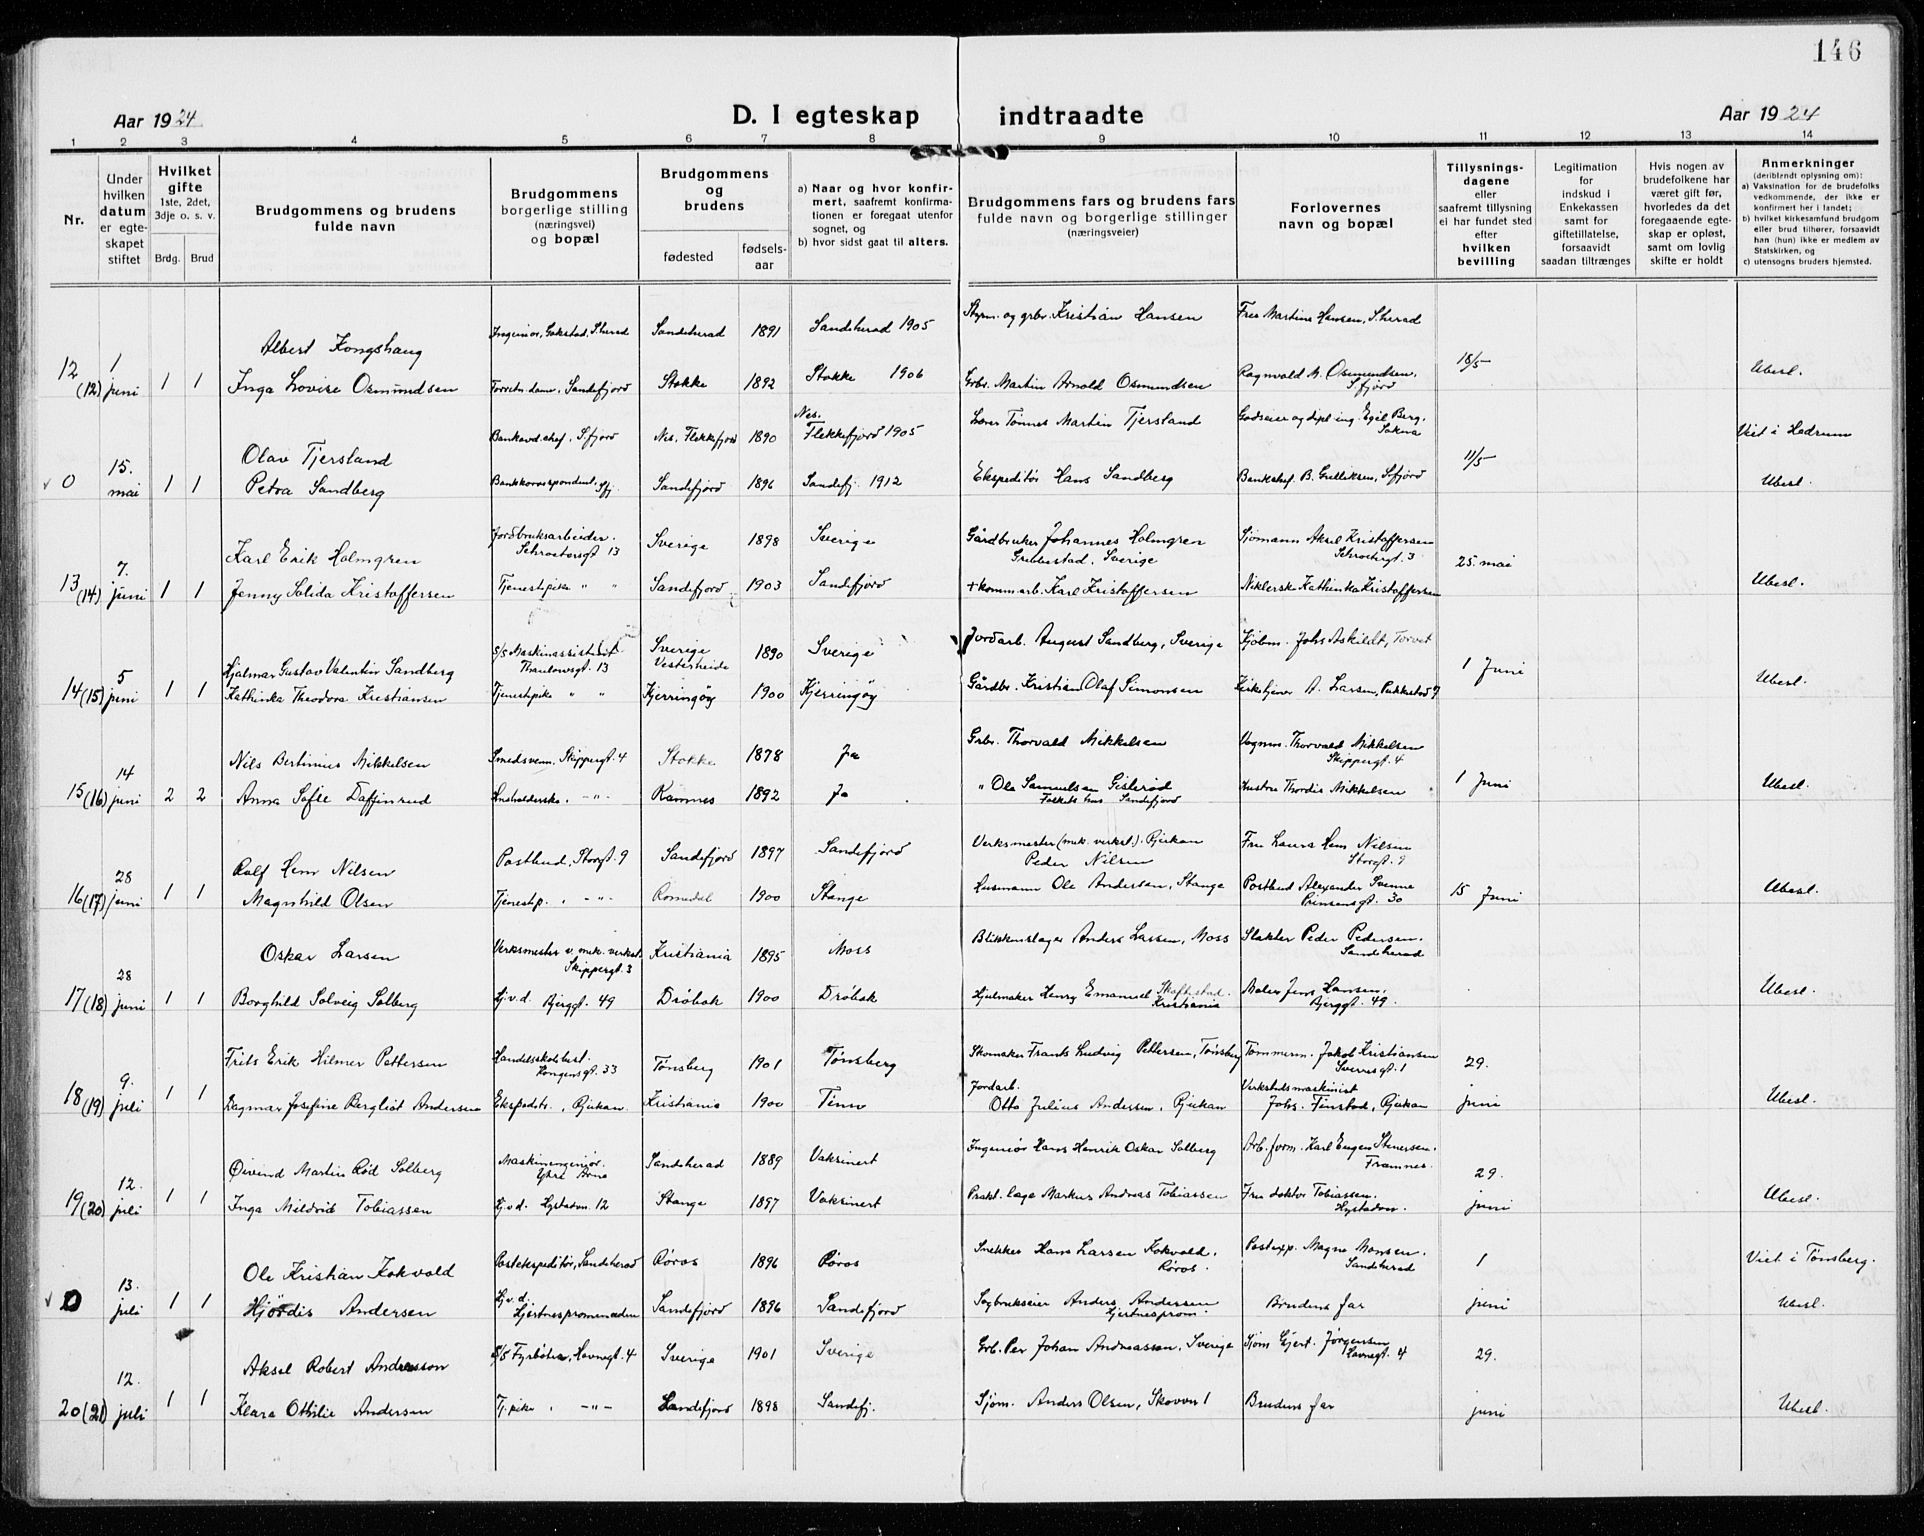 146
Aar 1924
D. I egteskap indtraadte
Aar 1924
1 2 3 4 5 6 7 8 9 10 11 12 13 14
Nr.
Under hvilken datum er egteskapet stiftet
Hvilket gifte 1ste, 2det, 3dje o. s. v.
Brdg. Brud
Brudgommens og brudens fulde navn
Brudgommens borgerlige stilling (næringsvei) og bopæl
Brudgommens og brudens
fødested
fødsels-aar
a) Naar og hvor konfirmert, saafremt konfirmationen er foregaat utenfor sognet, og
b) hvor sidst gaat til alters.
Brudgommens fars og brudens fars fulde navn og borgerlige stillinger (næringsveier)
Forlovernes navn og bopæl
Tillysningsdagene eller saafremt tillysning ei har fundet sted efter hvilken bevilling
Legitimation for indskud i Enkekassen samt for giftetillatelse, forsaavidt saadan tiltrænges
Hvis nogen av brudefolkene har været gift før, hvorledes da det foregaaende egteskap er opløst, samt om lovlig skifte er holdt
Anmerkninger (deriblendt oplysning om):
a) Vaksination for de brudefolks vedkommende, der ikke er konfirmert her i landet;
b) hvilket kirkesamfund brudgom eller brud tilhører, forsaavidt han (hun) ikke er medlem av Statskirken, og
c) utensogns bruders hjemsted.
Albert Kongshaug Ingeniør, Gokstad, S.herad Sandeherad 1891 Sandeherad 1905 Styrm. og grbr. Kristian Hansen Fru Martine Hansen, S.herad
12 (12) 1 juni 1 1 Inga Lovise Osmundsen Forretn.dame, Sandefjord Stokke 1892 Stokke 1906 Grbr. Martin Arnold Osmundsen Ragnvald M. Osmundsen, S.fjord 18/5 Ubesl.
Olav Tjersland Bankavd.chef, S.fjord Nes, Flekkefjord 1890 Nes, Flekkefjord 1905 Lærer Tønnes Martin Tjersland Godseier og dipl. ing. Egil Berg, Viet i Hedrum
0 15. mai 1 1 Petra Sandberg Bankkorrespondent, Sfj. Sandefjord 1896 Sandefj. 1912 Ekspeditør Hans Sandberg Bankchef B. Gulliksen, S.fjord 11/5 Ubesl.
Karl Erik Holmgren Jordbruksarbeider, Schrøtersgt 13 Sverige 1898 Sverige Gårdbruker Johannes Holmgren Grebbestad, Sverige Sjømann Aksel Kristoffersen 25. mai
13 (14) 7. juni 1 1 Jenny Solida Kristoffersen Tjenestpike " " Sandefjord 1903 Sandefjord + komm.arb. Karl Kristoffersen Kathinka Kristoffersen Ubesl.
Hjalmar Gustav Valentin Sandberg S/S Maskinassistent Thaulowsgt. 13 Sverige Vesterheide 1890 Sverige Jordarb. August Sandberg, Sverige Kjøbm. Johs Askildt, Torvet 1 Juni
14 (15) 5 juni 1 1 Kathinka Theodora Kristiansen Tjenestpike " " Kjerringøy 1900 Kjerringøy Gårdbr. Kristian Olaf Simonsen Kirketjener A. Larsen, Pukkestad 7 Ubesl.
Nils Bertinius Mikkelsen Smedsvenn, Skippergt. 4 Stokke 1878 Ja Grbr. Thorvald Mikkelsen Vognm. Thorvald Mikkelsen Skippergt. 4
15 (16) 14 juni 2 2 Anna Sofie Daffinrud Husholderske, -"- Ramnes 1892 Ja " Ole Samuelsen Gislerød Folkets hus Sandefjord Hustru Thordis Mikkelsen 1 Juni Ubesl.
Rolf Hem Nilsen Postbud, Storgt. 9 Sandefjord 1897 Sandefjord Verksmester (mek. verkst.) Rjukan Peder Nilsen Fru Laura Hem Nilsen Storgt. 9
16 (17) 28 juni 1 1 Magnhild Olsen Tjenestp. -"- Romedal 1900 Stange Husmann Ole Andersen, Stange Postbud Alexander Svenne Prinsensgt. 30 15 Juni Ubesl.
Oskar Larsen Verksmester v. mek. verkst. Skippergt. 3 Kristiania 1895 Moss Blikkenslager Anders Larsen, Moss Slakter Peder Pedersen, Sandeherad
17 (18) 28 juni 1 1 Borghild Solveig Solberg Hj.v.d. Bjerggt. 49 Drøbak 1900 Drøbak Hjulmaker Henry Emanuel Skaftestad Kristiania Maler Jens Hansen, Bjerggt. 49. Ubesl.
Frits Erik Hilmer Pettersen Handelsskolebest. Kongensgt. 33 Tønsberg 1901 Tønsberg Skomaker Frants Ludvig Pettersen, Tønsberg Tømmerm. Jakob Kristiansen Sverresgt. 1 29.
18 (19) 9. juli 1 1 Dagmar Josefine Bergliot Andersen Ekspedtr., Rjukan Kristiania 1900 Tinn Jordarb. Otto Julius Andersen, Rjukan Verkstedsmaskinist Johs. Finstad, Rjukan juni Ubesl.
Øivind Martin Rød Solberg Maskiningeniør, Ytre Arna Sandeherad 1889 Vaksinert Ingeniør Hans Henrik Oskar Solberg Arb.form. Karl Eugen Stenersen, Framnes. 29.
19 (20) 12. juli 1 1 Inga Mildrid Tobiassen Hj.v.d. Hystadvn. 12 Stange 1897 Vaksinert Prakt. læge Markus Andreas Tobiassen Fru doktor Tobiassen, Hystadvn. juni Ubesl.
Ole Kristian Kokvold Postekspeditør, Sandeherad Røros 1896 Røros Snekker Hans Larsen Kokvold, Røros. Postexp. Magne Monsen, Sandeherad 1 Viet i Tønsberg.
0 13. juli 1 1 Hjørdis Andersen Hj.v.d. Hjertnespromenaden Sandefjord 1896 Sandefjord Sagbrukseier Anders Andersen Hjertnesprom. Brudens far juni Ubesl.
Aksel Robert Andersson S/S Fyrbøter, Havnegt. 4 Sverige 1901 Sverige Grb. Per Johan Andreasson, Sverige Sjøm Gjert Jørgensen Havnegt. 4 29.
20 (21) 12. juli 1 1 Klara Othilie Andersen Tj.pike -"- Sandefjord 1898 Sandefj. Sjøm. Anders Olsen, Skovvn 1 Brudens far juni Ubesl.